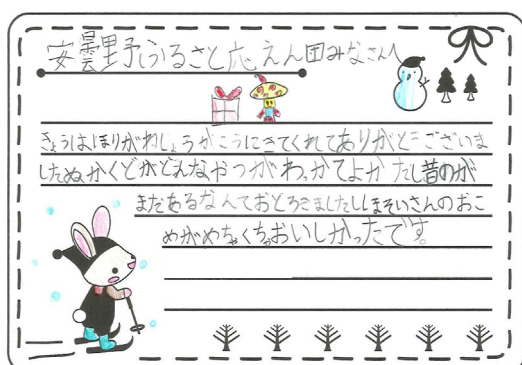 安曇野ふるさと応えん団みなさんへ
きょうはほりがねじょうがこうにきてくれてありがとございま
したぬかくどがどんなやつがわっかてよかたし昔のが
まだあるなんておどろきましたしほそいさんのおこ
めがめちゃくちゃおいしかったです。